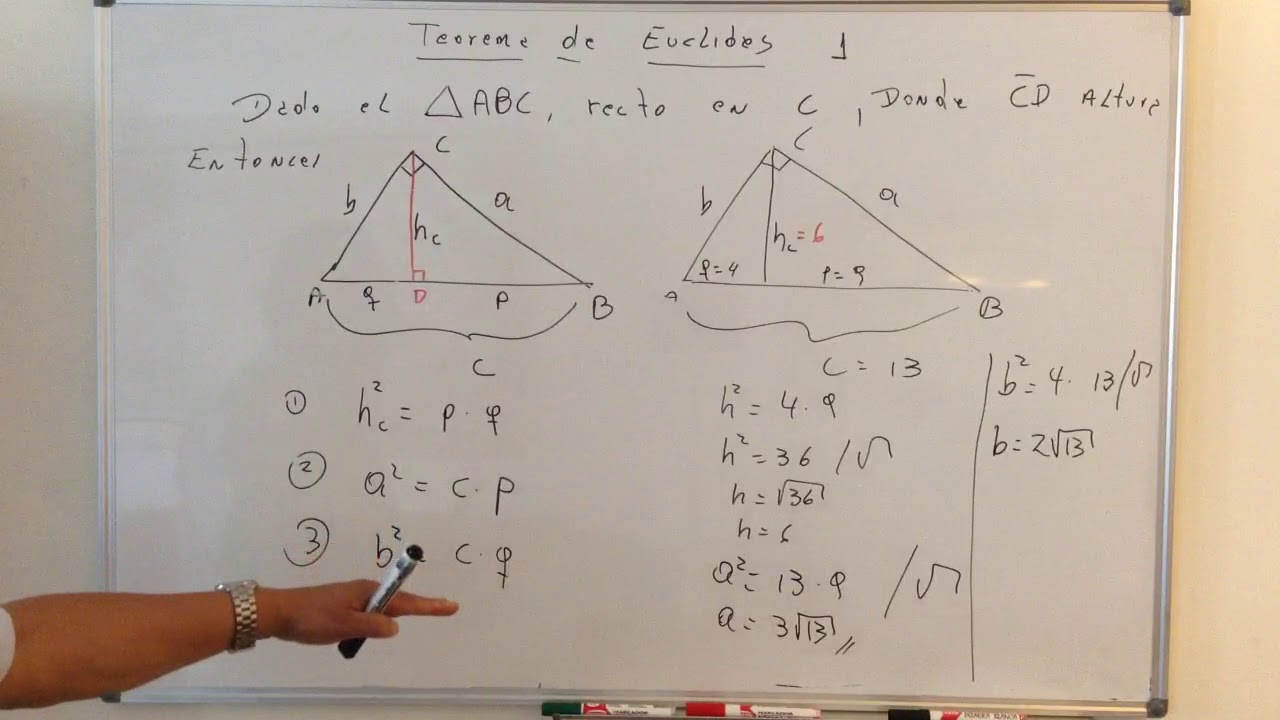 Teorema de Euclides 1
Dado el △ABC, recto en C, Donde C̅D̅ Altura
Entonces
C
b
a
h_c
A
q
D
p
B
c
C
b
a
h_c = 6
q = 4
p = 9
A
B
c = 13
① h_c² = p · q
② a² = c · p
③ b² = c · q
h² = 4 · 9
h² = 36 /√
h = √36
h = 6
a² = 13 · 9 /√
a = 3√13 //
b² = 4 · 13 /√
b = 2√13
MARCADOR
PIZARRA BLANCA